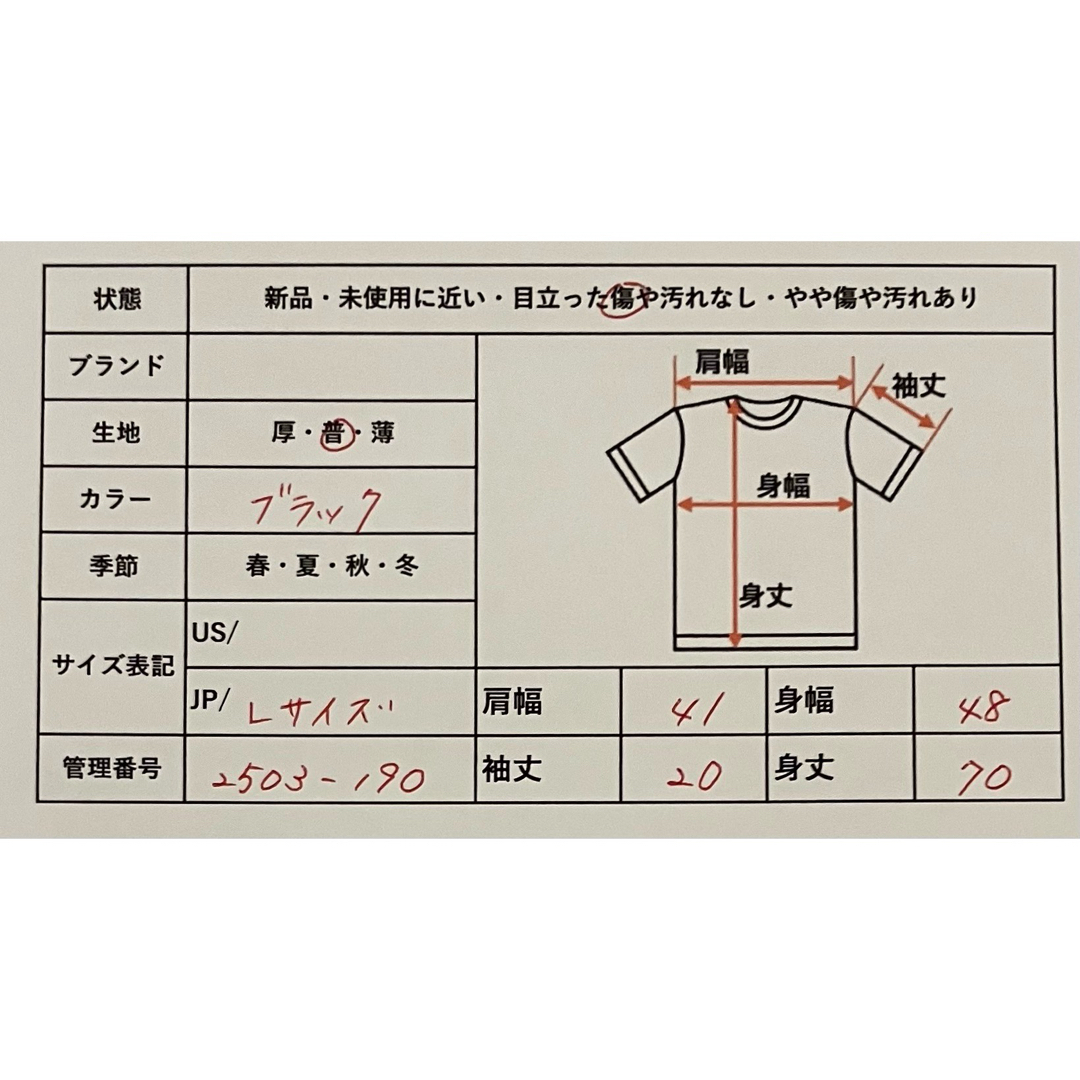 状態 新品・未使用に近い・目立った傷や汚れなし・やや傷や汚れあり
ブランド
肩幅
袖丈
生地 厚・普・薄
身幅
カラー ブラック
季節 春・夏・秋・冬
身丈
サイズ表記 US/
JP/ Lサイズ 肩幅 41 身幅 48
管理番号 2503-190 袖丈 20 身丈 70